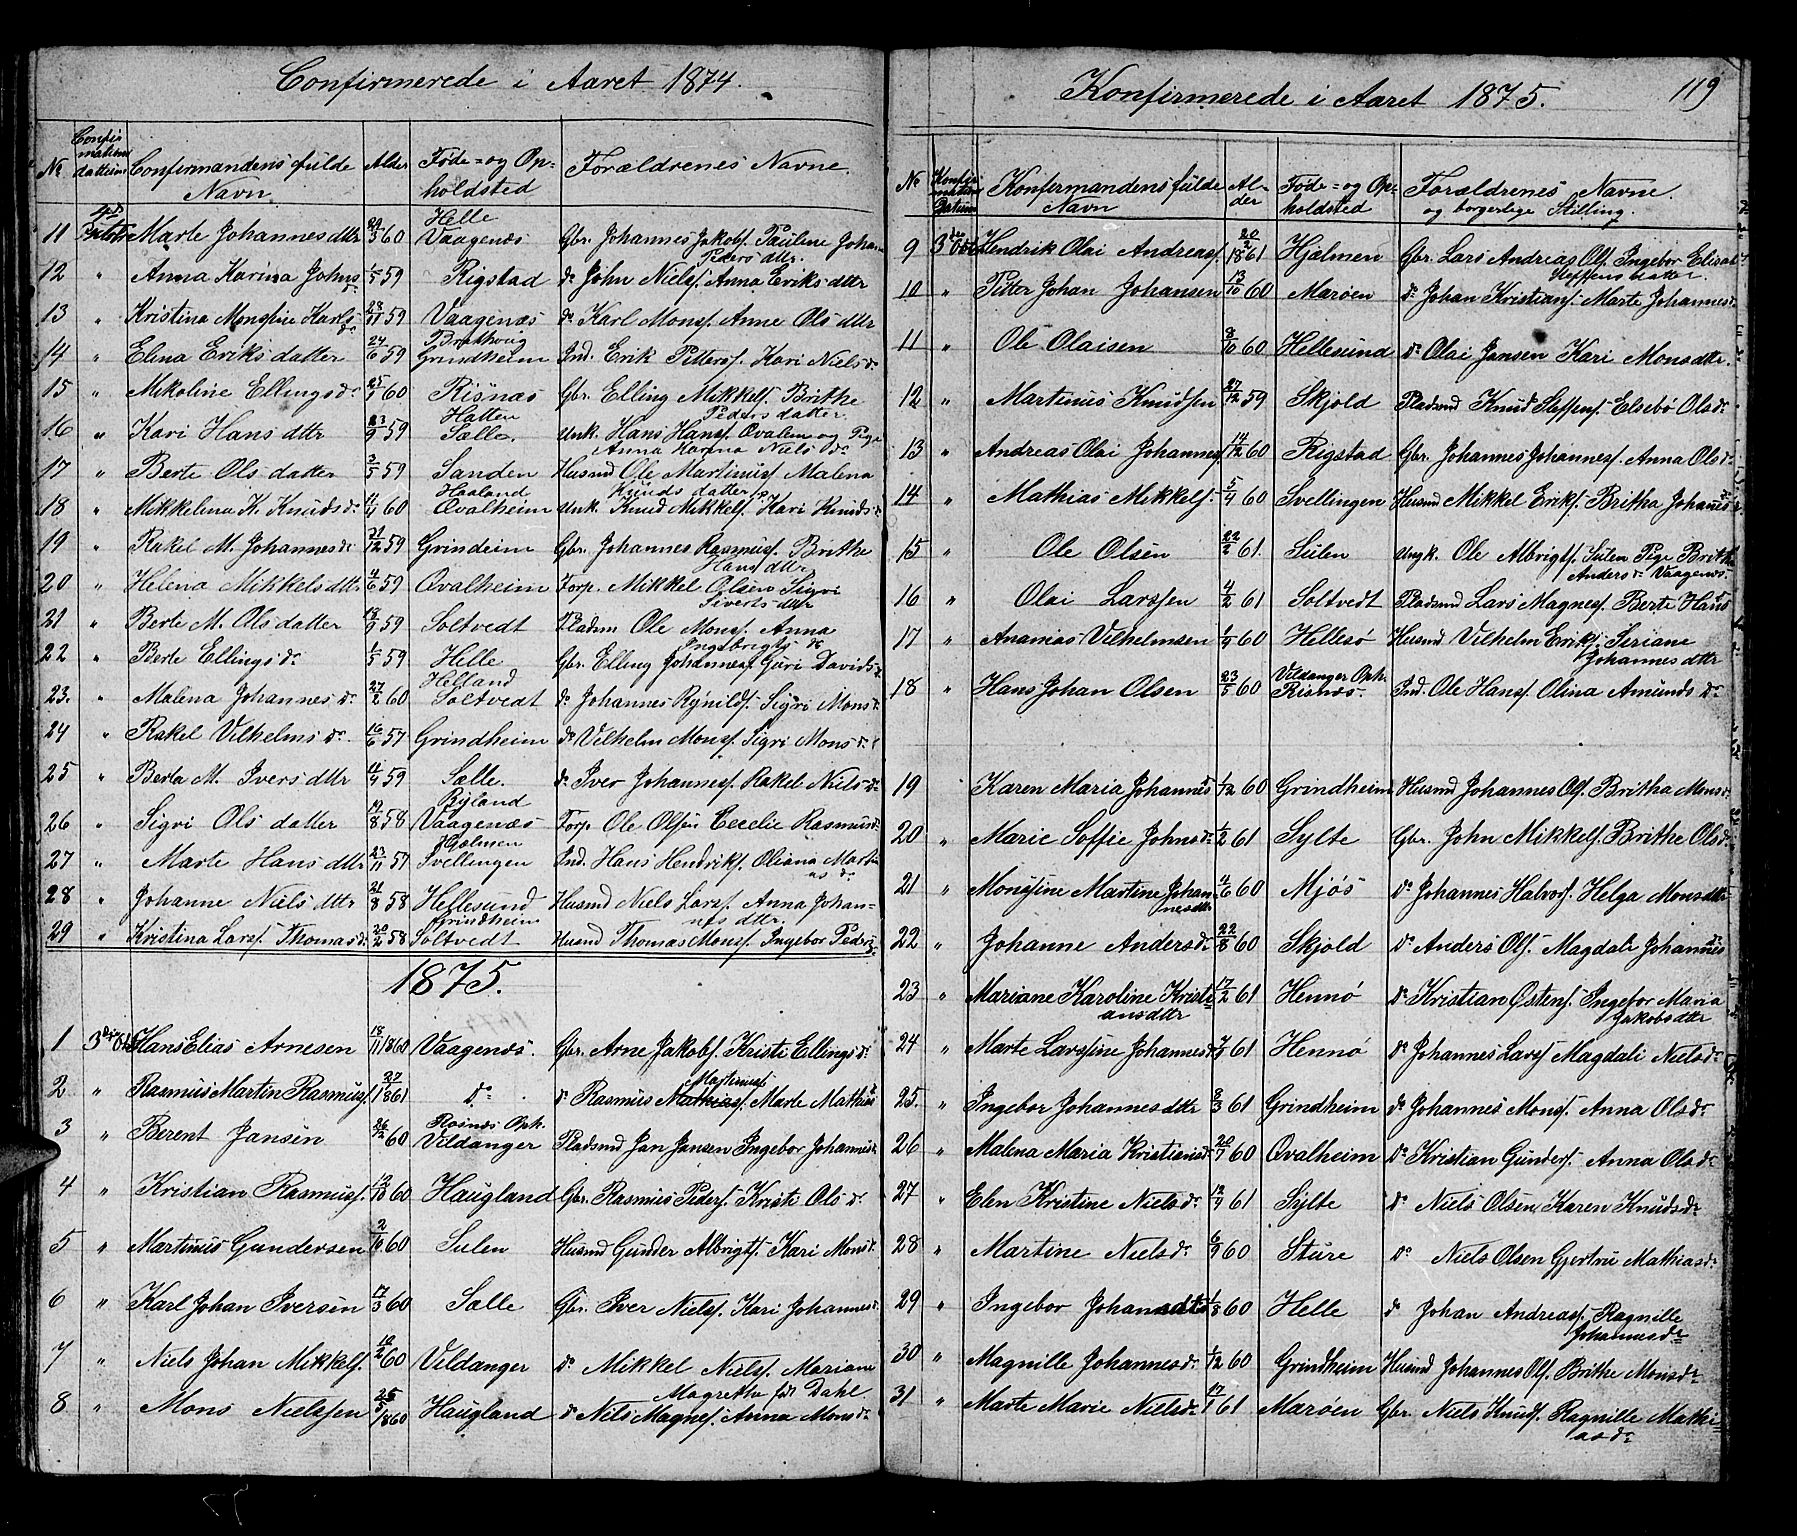 Confirmerede i Aaret 1874.
No Confirmations datum Confirmandens fulde Navn. Alder Føde- og Opholdsted Forældrenes Navne.
11 4de Oktobr Marte Johannesdttr 29/3 60 Helle Vaagenæs Gbr. Johannes Jakobs. Pauline Johan Peders dttr.
12 " Anna Karina Johnsd. 1/5 59 Rigstad do John Niels. Anna Eriks dttr
13 " Kristina Monsine Karlsdr 28/11 59 Vaagenæs do Karl Mons. Anne Ols dttr
14 " Elena Eriks datter 24/6 59 Brathoug Grindheim Ind. Erik Petters. Kari Niels dr
15 " Mikoline Ellingsdr 25/1 60 Risnæs Gbr. Elling Mikkels. Brithe Peders datter.
16 " Kari Hans dttr 23/9 59 Hatten Sælle. Unk. Hans Hans. Qvalem og Pige Anna Karina Niels dr
17 " Berte Ols datter 3/5 59 Sanden Husmd Ole Martinus. Malena Knuds datter
18 " Mikkelina K. Knudsdr 11/4 60 Haaland Qvalheim Unk. Knud Mikkels. Kari Knuds dr
19 " Rakel M. Johannesdr 21/12 59 Grindeim Gbr. Johannes Rasmus. Brithe Hans dttr
20 " Helena Mikkels dttr. 4/6 59 Qvalheim Forp. Mikkel Olsen Sigri Siverts dttr
21 " Berte M. Ols datter 13/9 59 Soltvedt Pladsm Ole Mons. Anna Ingebrigts dr
22 " Berte Ellings dr 1/5 59 Helle Gbr. Elling Johannes. Guri Davids dr
23. " Malena Johannes dr. 27/2 60 Helland Soltvedt do Johannes Rynilds. Sigri Mons dr
24 " Rakel Vilhelms dr. 16/6 57 Grindheim do Vilhelm Mons. Sigri Mons dr
25 " Berta M. Ivers dttr 11/9 59 Sælle. do Iver Johannes. Rakel Niels dr
26 " Sigri Ols datter 19/8 58 Ryland Vaagenæs Forp Ole Olsen Cecelie Rasmus dr
27 " Marte Hans dttr 23/11 57 Holmen Svellingen Ind. Hans Hendriks. Oliana Martinus dr
28 " Johanne Niels dttr 21/8 58 Hellesund Husmd Niels Lars. Anna Johannes dttr.
29 " Kristina Lars. Thomasdr. 20/2 58 Grindheim Soltvedt Husmd Thomas Mons. Ingebor Pedersdr
1875.
1 3die Oktbr Hans Elias Arnesen 18/11 1860 Vaagenæs. Gbr. Arne Jakobs. Kristi Ellings dr.
2 " Rasmus Martin Rasmus. 27/1 1861 do do Rasmus Mathias. Martinus. Marte Mathias d
3 " Berent Jansen 26/12 60 Rosnæs Oph. Vildanger Pladsmd Jan Jansen Ingebor Johannesdr
4 " Kristian Rasmus. 12/10 60 Haugland Gbr. Rasmus Peders. Kristi Ols dr.
5 " Martinus Gundersen 2/10 60 Sulen Husmd Gunder Albrigts. Kari Mons dr
6 " Karl Johan Iversen 17/3 60 Sælle Gbr. Iver Niels. Kari Johannes dr
7 " Niels Johan Mikkels. 10/2 60 Vildanger do Mikkel Niels. Mariane Magrethe fdt Dahl.
8 " Mons Nielssen 25/5 1860 Haugland do Nils Magnes. Anna Mons dr
Konfirmerede i Aaret 1875. 119
No Konfirmations Datum Konfirmandens fulde Navn Alder Føde- og Opholdsted Forældrenes Navne og borgerlige Stilling.
9 3die Okt Hendrik Olai Andreas. 20/2 1861 Hjelmen Gbr. Lars Andreas Ols. Ingebor Elisab Steffens datter.
10 " Pitter Johan Johansen 13/10 60 Marøen do Johan Kristians. Marte Johannes dr
11 " Ole Olaisen 8/10 60 Hellesund do Olai Jansen Kari Mons dttr.
12 " Martinus Knudsen 27/12 59 Skjold Pladsmd Knud Steffens. Elsebø Ols dr
13 " Andreas Olai Johannes. 14/12 60 Rigstad Gbr. Johannes Johannes. Anna Ols dr
14 " Mathias Mikkels. 5/4 60 Svellingen Husmd Mikkel Eriks. Britha Johannes dr
15 " Ole Olsen 22/2 61. Sulen Ungk. Ole Albrigts. Sulen Pige Britha Anders dr Vaagenes.
16 " Olai Larssen 4/2 61 Soltvedt Pladsmd Lars Magnes. Berte Hans
17 " Ananias Vilhelmsen 1/9 60 Hellesø Husmd Vilhelm Eriks. Seriane Johannes dttr
18 " Hans Johan Olsen 23/5 60 Vildanger Oph. Risnæs. Ind. Ole Hans. Olina Amunds dr
19 Karen Maria Johannes d 1/12 60 Grindheim Husmd Johannes Ols. Britha Mons dr
20 " Marie Soffie Johns dr 1/2 61 Sylte Gbr. John Mikkels. Brithe Ols dr
21 " Monsine Martine Johannesdttr 4/6 60 Mjøs do Johannes Halvors. Helga Mons dttr
22 " Johanne Anders dr 22/8 60 Skjold do Anders Ols. Magdali Johannes dr
23 " Mariane Karoline Kristiansdttr 17/2 61 Hennø do Kristian Østens. Ingebor Maria Jakobsdttr
24 " Marte Larssine Johannes dr 7/3 61 Hennø do Johannes Lars. Magdali Niels dr
25. " Ingebor Johannes dttr 8/3 61 Grindheim do Johannes Mons. Anna Ols dr
26 " Malena Maria Kristians dr 20/7 60 Qvalheim do Kristian Gunders. Anna Ols dr
27 " Elen Kristine Niels dr 12/4 61 Sylte do Niels Olsen Karen Knuds dr
28 " Martine Niels dr 6/9 60 Sture do Niels Olsen Gjertru Mathias dr
29 " Ingebor Johansdtr 1/8 60 Helle do Johan Andreas. Ragnille Johannes dr
30 " Magnille Johannes dr 1/12 60 Grindheim Husmd Johannes Ols. Brithe Mons dr
31 " Marte Marie Niels dr 17/1 61 Marøen Gbr. Niels Knuds. Ragnille Mathias dr